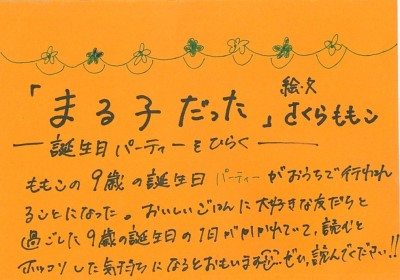 「まる子だった」絵・文 さくらももこ
―誕生日パーティーをひらく―
ももこの9歳の誕生日パーティーがおうちで行われ
ることになった。おいしいごはんに大好きな友だちと
過ごした9歳の誕生日の1日がかかれていて、読むと
ホッコリした気持ちになるとおもいます。ぜひ、読んでください!!